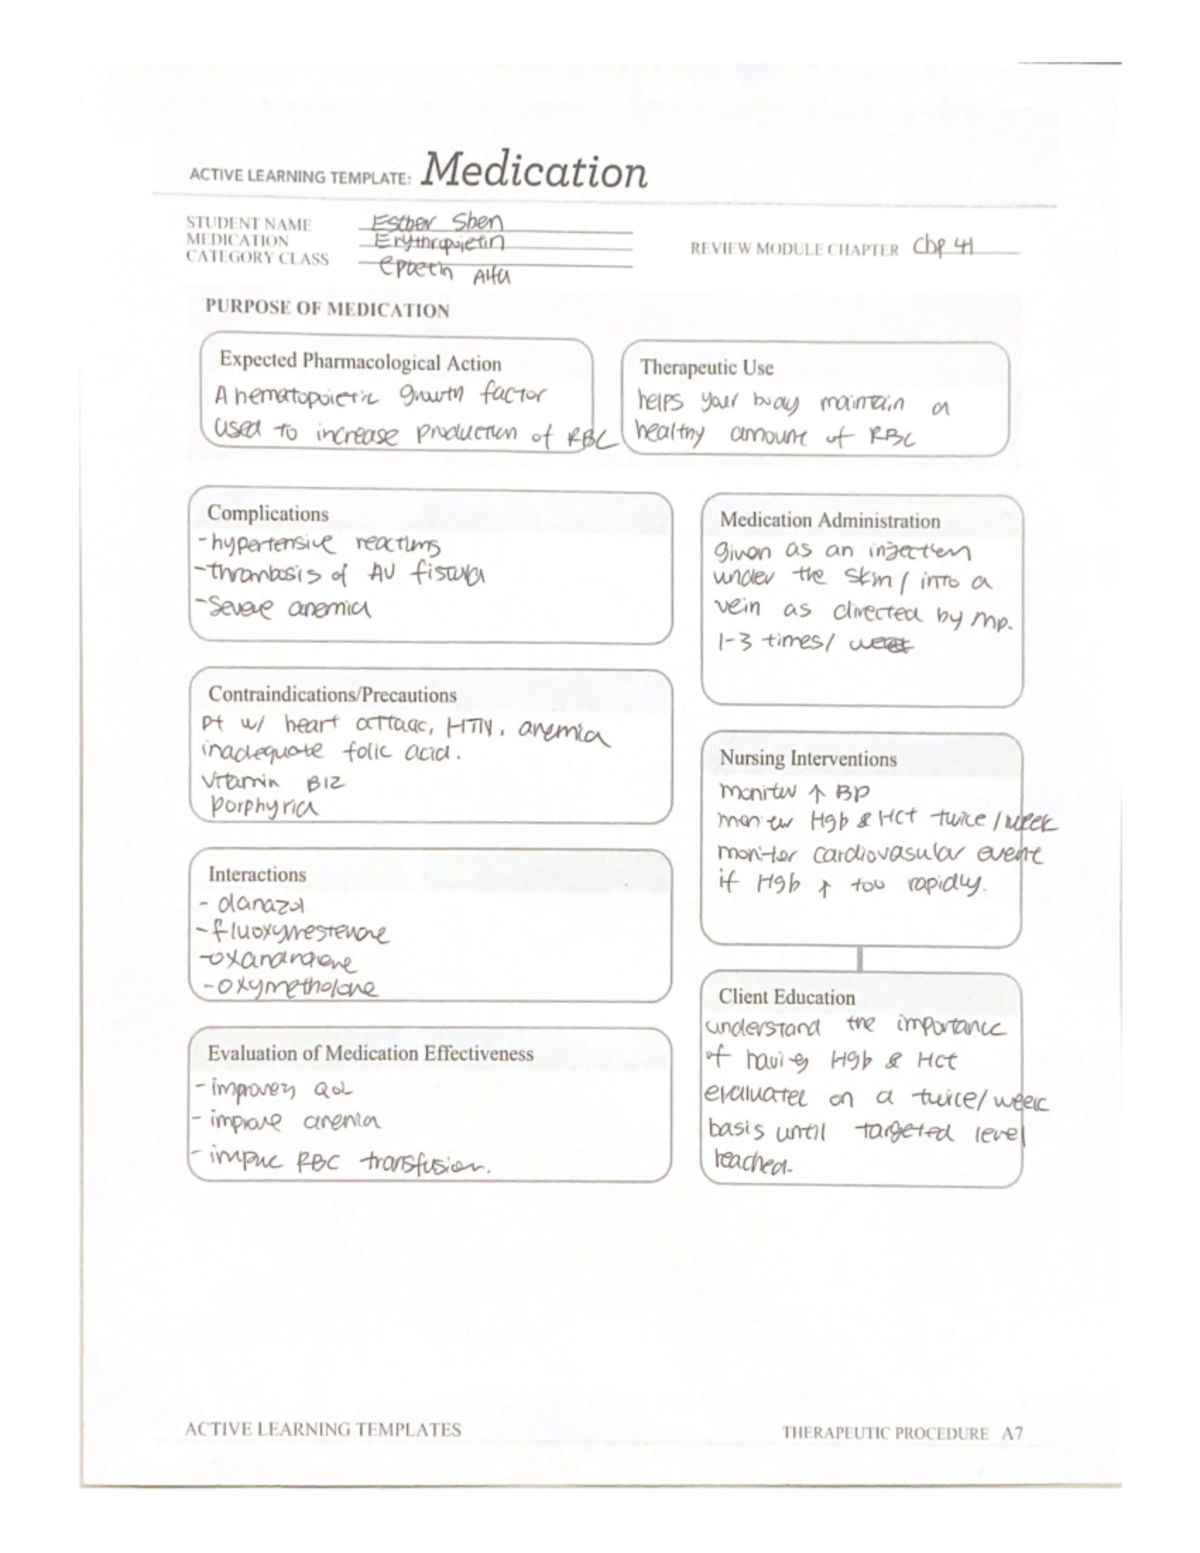 ACTIVE LEARNING TEMPLATE: Medication
STUDENT NAME Esther Shen
MEDICATION Erythropoietin
CATEGORY CLASS Epoetin Alfa
REVIEW MODULE CHAPTER Chp 41
PURPOSE OF MEDICATION
Expected Pharmacological Action
A hematopoietic growth factor
used to increase production of RBC
Therapeutic Use
helps your body maintain a
healthy amount of RBC
Complications
-hypertensive reactions
-thrombosis of AV fistula
-Severe anemia
Contraindications/Precautions
Pt w/ heart attack, HTN, anemia
inadequate folic acid.
Vitamin B12
porphyria
Interactions
- danazol
-fluoxymesterone
-oxandrolone
-oxymetholone
Evaluation of Medication Effectiveness
- improves QoL
- improve anemia
- RBC transfusion.
Medication Administration
given as an injection
under the skin / into a
vein as directed by MD.
1-3 times/ week
Nursing Interventions
monitor ↑ BP
monitor Hgb & Hct twice /week
monitor cardiovasular event
if Hgb ↑ too rapidly.
Client Education
understand the importance
of having Hgb & Hct
evaluated on a twice/week
basis until targeted level
reached.
ACTIVE LEARNING TEMPLATES
THERAPEUTIC PROCEDURE A7